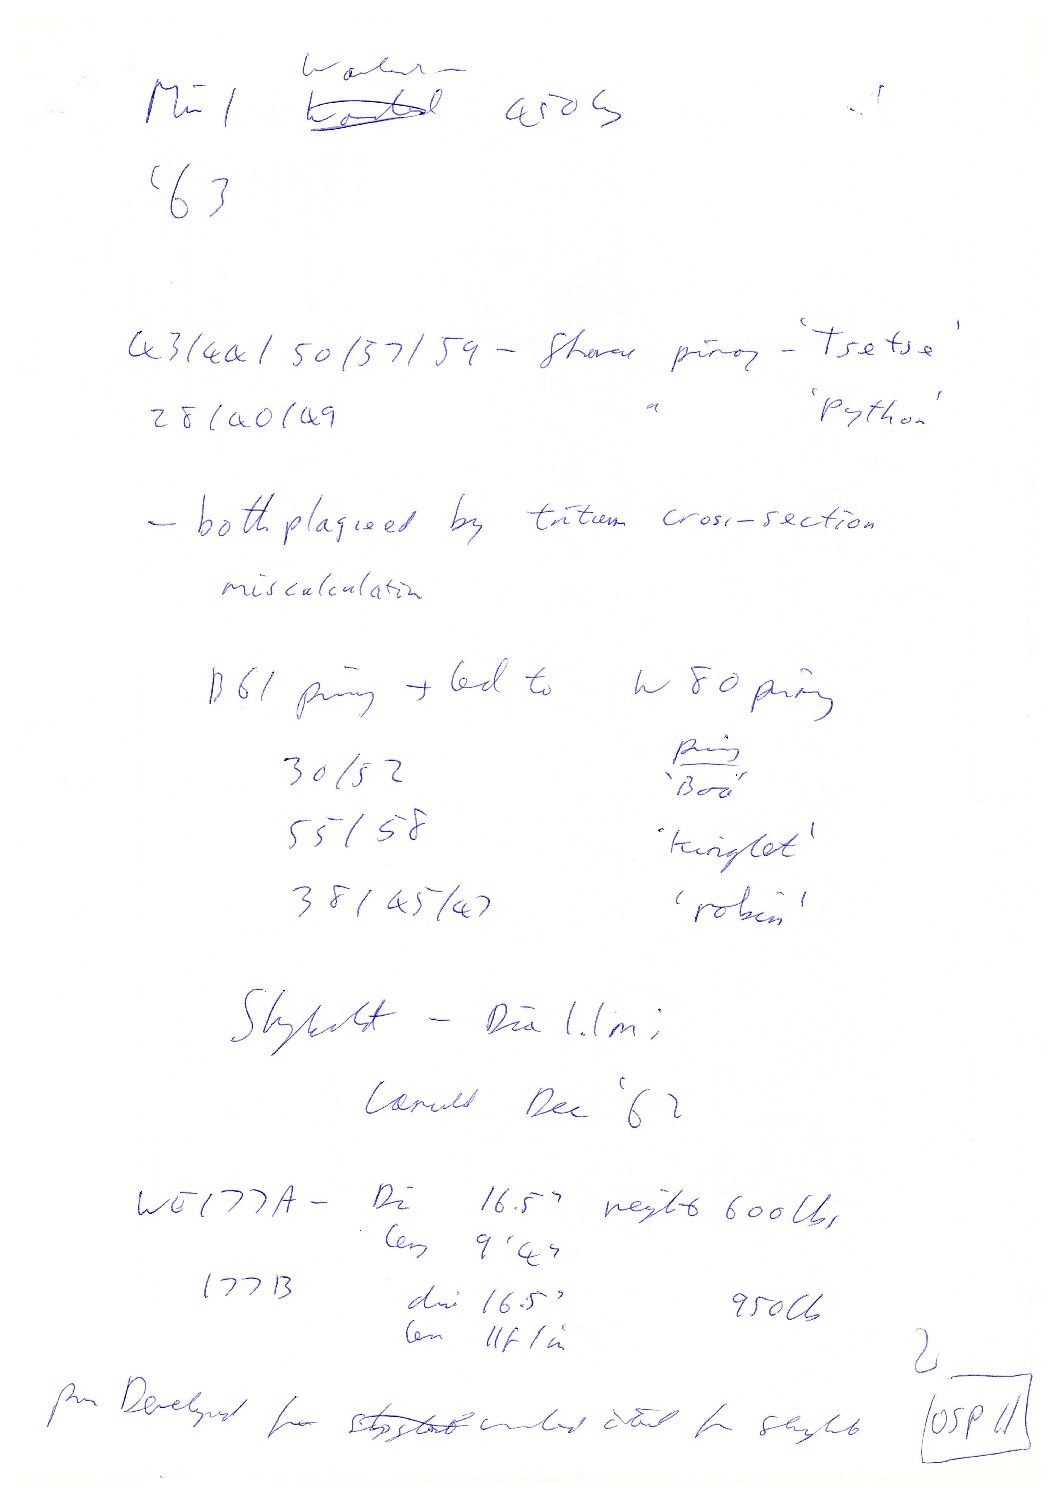 Min 1 450 lb
'63
43/44/50/57/59 - Share primary - 'Tsetse'
28/40/49 " 'Python'
- both plagued by tritium cross-section
miscalculation
B61 primary → led to W80 primary
30/52 primary 'Boa'
55/58 'Kinglet'
38/45/47 'robin'
Skybolt - Dia 1.1m;
Cancelled Dec '62
WE177A - Di 16.5" weight 600lbs,
len 9'4"
177B dia 16.5" 950lb
len 11ft 1in
Developed from for skybolt
2
OSP 11